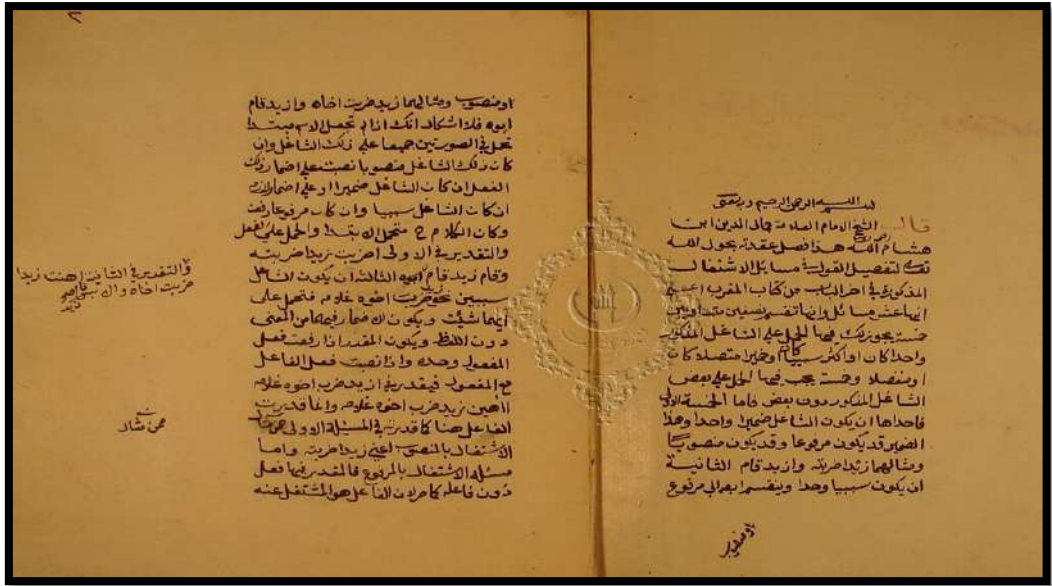 بسم الله الرحمن الرحيم وبه ثقتي
قال الشيخ الامام العلامة جمال الدين ابن
هشام رحمه الله هذا فصل عقدته بحول الله
تعالى لتفصيل القول في مسائل الاشتغال
المذكورة في اخر الباب من كتاب المقرب اعلم
انها عشر مسائل وانها تنقسم قسمين متساويين
خمسة يجوز لك فيها الحمل على الشاغل المذكور
واحدا كان او اكثر سببيا كان او ضميرا متصلا كان
او منفصلا وخمسة يجب فيها الحمل على بعض
الشاغل المذكور دون بعض فاما الخمسة الاولى
فاحداها ان يكون الشاغل ضميرا واحدا وهذا
الضمير قد يكون مرفوعا وقد يكون منصوبا
ومثالهما زيدا ضربته وازيد قام الثانية
ان يكون سببيا واحدا وينقسم ايضا الى مرفوع
او منصوب
٢
او منصوب ومثالهما زيد ضربت اخاه وازيد قام
ابوه فلا اشكال انك اذا لم تجعل الاسم مبتدا
تحمل في الصورتين جميعا على ذلك الشاغل وان
كان ذلك الشاغل منصوبا نصبت على اضمار ذلك
الفعل ان كان الشاغل ضميرا او على اضمار
ان كان الشاغل سببيا وان كان مرفوعا رفعت
وكان الكلام ح محتمل الابتدا والحمل على الفعل
والتقدير في الاولى اضربت زيدا ضربته
وقام زيد قام ابوه الثالثة ان يكون الشاغل
سببيين نحو زيد ضرب اخوه غلامه فتحمل على
ايهما شئت ويكون الاضمار فيهما من المعنى
دون اللفظ ويكون المقدر اذا رفعت فعل
المفعول وحده واذا نصبت فعل الفاعل
مع المفعول فيقدر في ازيد ضرب اخوه غلامه
ااهين زيد ضرب اخوه غلامه وانما قدرت
الفاعل هنا كما قدرت في المسئلة الاولى
الاشتغال بالمنصوب اعني زيدا ضربته واما
مسئلة الاشتغال بالمرفوع فالمقدر فيها فعل
دون فاعله كما مر لان الفاعل هو المشتغل عنه
والتقدير في الثانية اهنت زيدا
ضربت اخاه